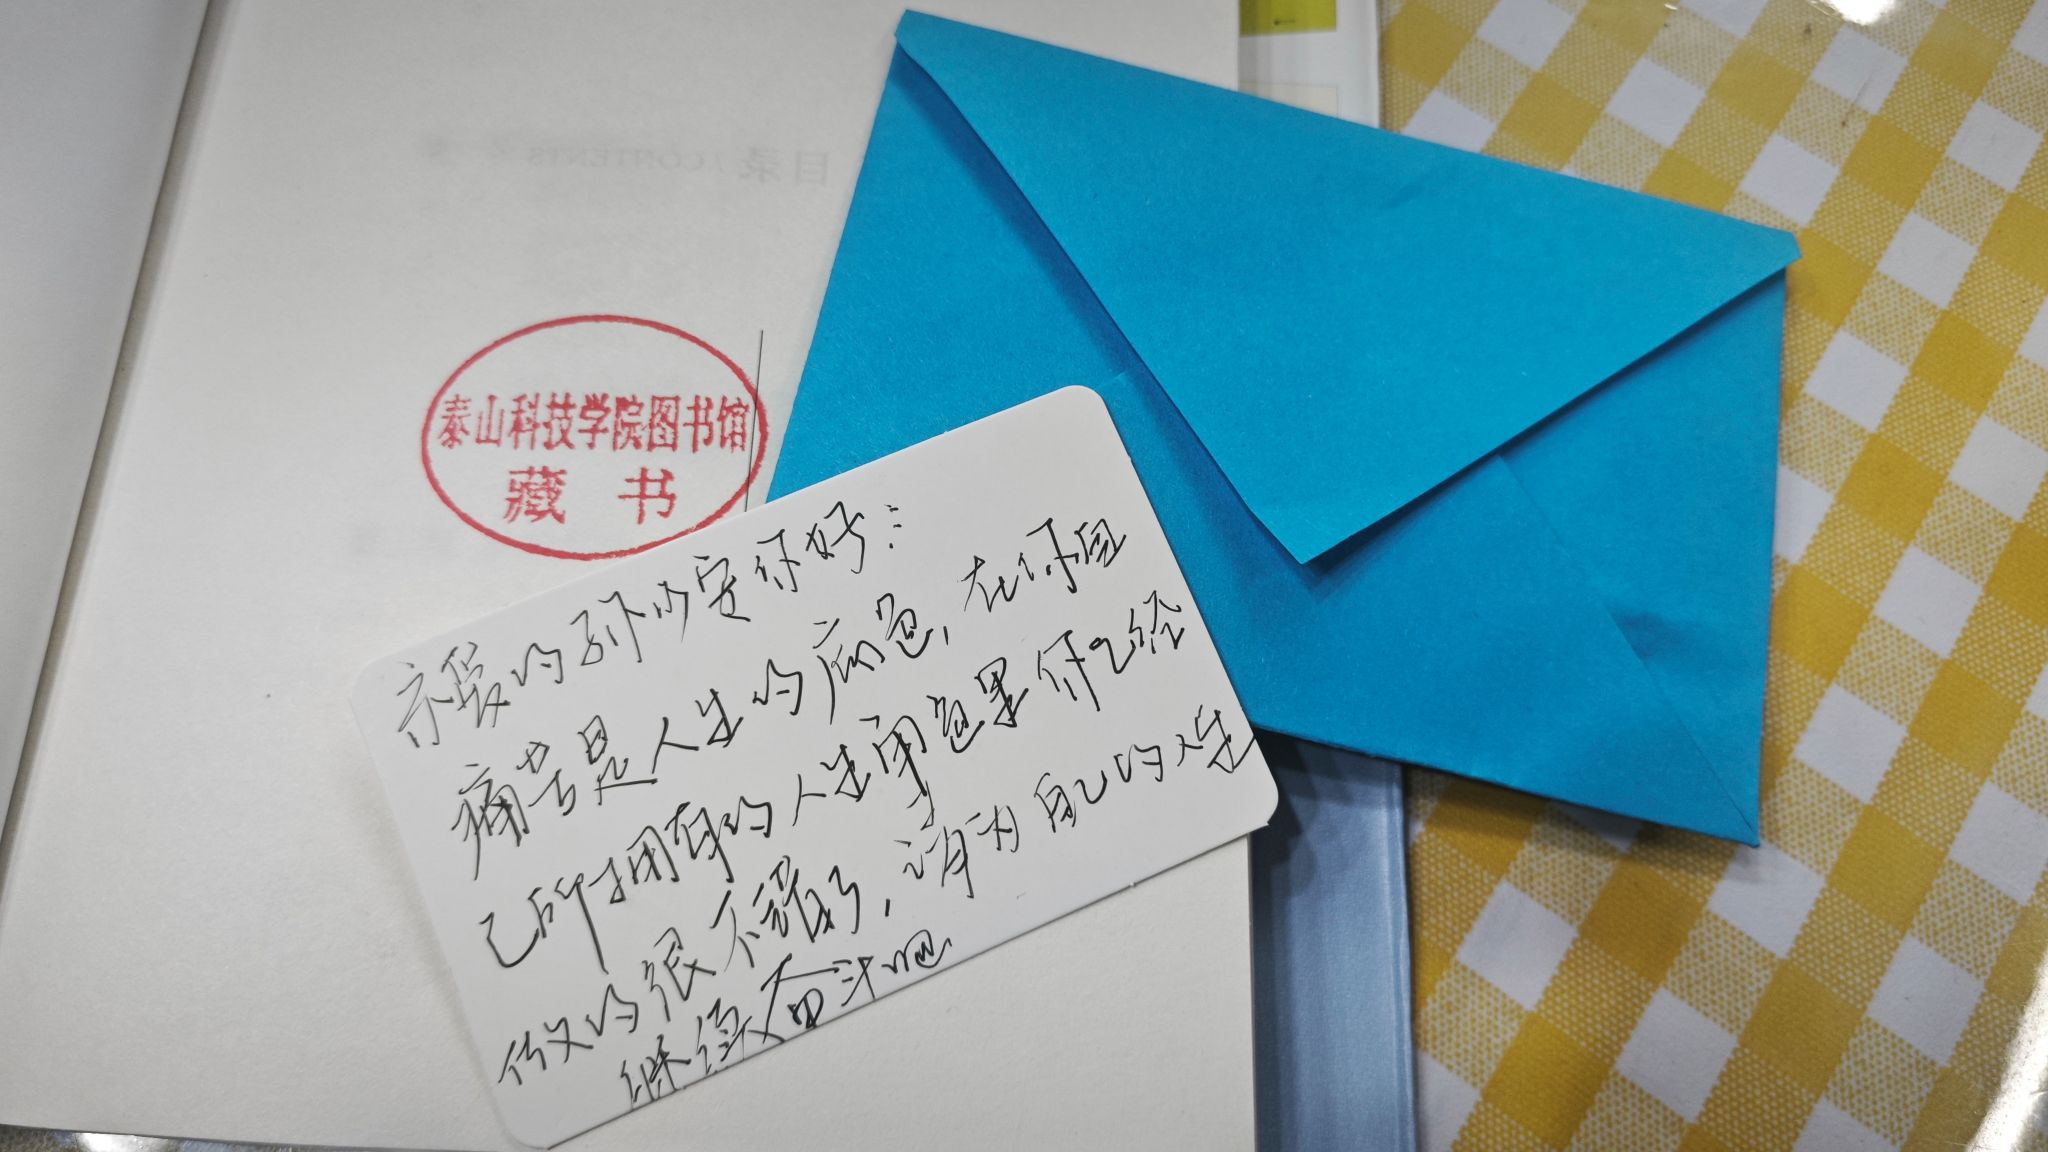 目录 / CONTENTS
泰山科技学院图书馆
藏 书
亲爱的孙少安你好：
痛苦是人生的底色，在你自
己所拥有的人生角色里你已经
做的很不错了，请为自己的人生
继续奋斗吧